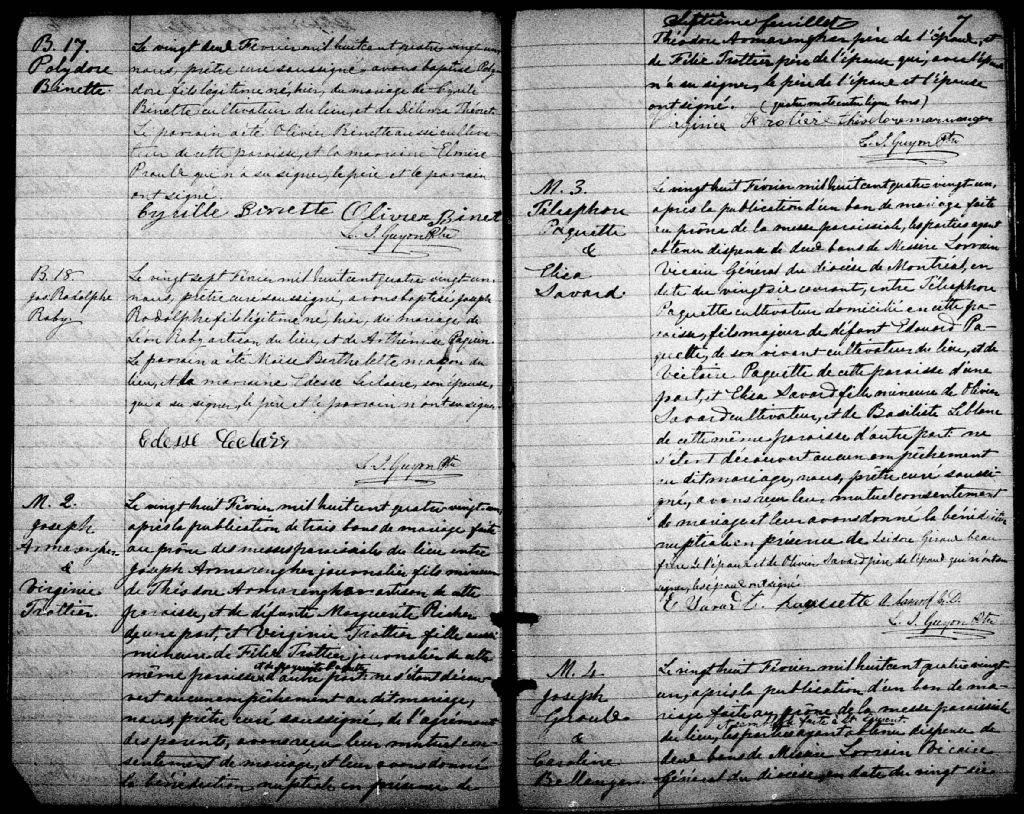 B. 17.
Polydore
Binette
Le vingt deux Février mil huit cent quatre vingt un,
nous, prêtre curé soussigné, avons baptisé Poly-
dore fils légitime né, hier, du mariage de Cyrille
Binette cultivateur du lieu, et de Délima Théoret.
Le parrain a été Olivier Binette aussi cultiva-
teur de cette paroisse, et la marraine Elmire
Proulx qui n'a su signer, le père et le parrain
ont signé.
Cyrille Binette Olivier Binet
L. I. Guyon Ptre
B. 18
Jos Rodolphe
Raby
Le vingt sept Février mil huit cent quatre vingt un,
nous, prêtre curé soussigné, avons baptisé Joseph
Rodolphe fils légitime né, hier, du mariage de
Léon Raby artisan du lieu, et de Arthémise Papin.
Le parrain a été Moïse Berthelette maçon du
lieu, et la marraine Edesse Leclaire, son épouse,
qui a su signer, le père et le parrain n'ont su signer.
Edesse Leclair
L. I. Guyon Ptre
M. 2.
Joseph
Armarengher
&
Virginie
Trottier
Le vingt huit Février mil huit cent quatre vingt un,
après la publication de trois bans de mariage faite
au prône des messes paroissiales du lieu entre
Joseph Armarengher journalier fils mineur
de Théodore Armarengher artisan de cette
paroisse, et de défunte Marguerite
d'une part, et Virginie Trottier fille aussi
mineure de Félix Trottier journalier de cette
et de
même paroisse d'autre part: ne s'étant décou-
vert aucun empêchement au dit mariage,
nous, prêtre curé soussigné, de l'agrément
des parents, avons reçu leur mutuel con-
sentement de mariage, et leur avons donné
la bénédiction nuptiale en présence de
Septième feuillet 7
Théodore Armarengher père de l'époux, et
de Félix Trottier père de l'épouse qui,
n'a su signer, le père de l'époux et l'épouse
ont signé. (quatre mots entre ligne bons)
Virginie Trotier Théodore
L. I. Guyon Ptre
M. 3.
Télesphore
Paquette
&
Elisa
Savard
Le vingt huit Février mil huit cent quatre vingt un,
après la publication d'un ban de mariage faite
au prône de la messe paroissiale, les parties ayant
obtenu dispense de deux bans de Messire Lorrain
Vicaire Général du diocèse de Montréal, en
date du vingt six courant, entre Télesphore
Paquette cultivateur domicilié en cette pa-
roisse, fils majeur de défunt Edouard Pa-
quette, de son vivant cultivateur du lieu, et de
Victoire Paquette de cette paroisse d'une
part, et Elisa Savard fille mineure de Olivier
Savard cultivateur, et de Basiliste Leblanc
de cette même paroisse d'autre part: ne
s'étant découvert aucun empêchement
au dit mariage, nous, prêtre curé soussi-
gné, avons reçu leur mutuel consentement
de mariage et leur avons donné la bénédiction
nuptiale en présence de Isidore Giroux beau
frère de l'époux et de Olivier Savard père, de l'épouse qui n'ont su
signer, les époux ont signé
E Savard T. Paquette
L. I. Guyon Ptre
M. 4
Joseph
Giroux
&
Caroline
Bellenger
Le vingt huit Février mil huit cent quatre vingt
un, après la publication d'un ban de ma-
riage faite au prône de la messe paroissiale
faite à St
du lieu, les parties ayant obtenu dispense de
deux bans de Messire Lorrain Vicaire
Général du diocèse, en date du vingt six